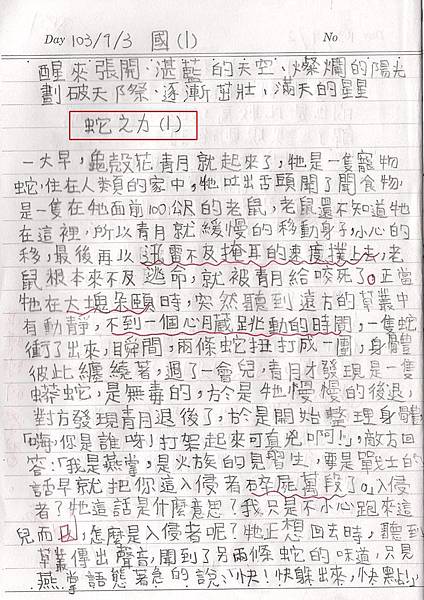 Day 103/9/3 國(1) No
醒來 張開 湛藍 的天空、燦爛的陽光
劃破天際、逐漸茁壯、滿天的星星
蛇之力(1)
一大早，龜殼花青月就起來了，牠是一隻寵物
蛇，住在人類的家中，牠吐出舌頭聞了聞食物，
是一隻在牠面前100公尺的老鼠，老鼠還不知道牠
在這裡，所以青月就緩慢的移動身子，小心的
移，最後再以迅雷不及掩耳的速度撲上去，老
鼠根本來不及逃命，就被青月給咬死了。正當
牠在大塊朵頤時，突然聽到遠方的草叢中
有動靜，不到一個心臟跳動的時間，一隻蛇
衝了出來，瞬間，兩條蛇扭打成一團，身體
彼此纏繞著，過了一會兒，青月才發現是一隻
蟒蛇，是無毒的，於是牠慢慢的後退，
對方發現青月退後了，於是開始整理身體，
「嗨，你是誰啊！打架起來可真兇啊！」，敵方回
答：「我是燕掌，是火族的見習生，要是戰士的
話早就把你這入侵者碎屍萬段了。」入侵
者？牠這話是什麼意思？我只是不小心跑來這
兒而已，怎麼是入侵者呢？牠正想回去時，聽到
草叢傳出聲音，聞到了另兩條蛇的味道，只見
燕掌語態著急的說：「快！快躲出來，快點！」